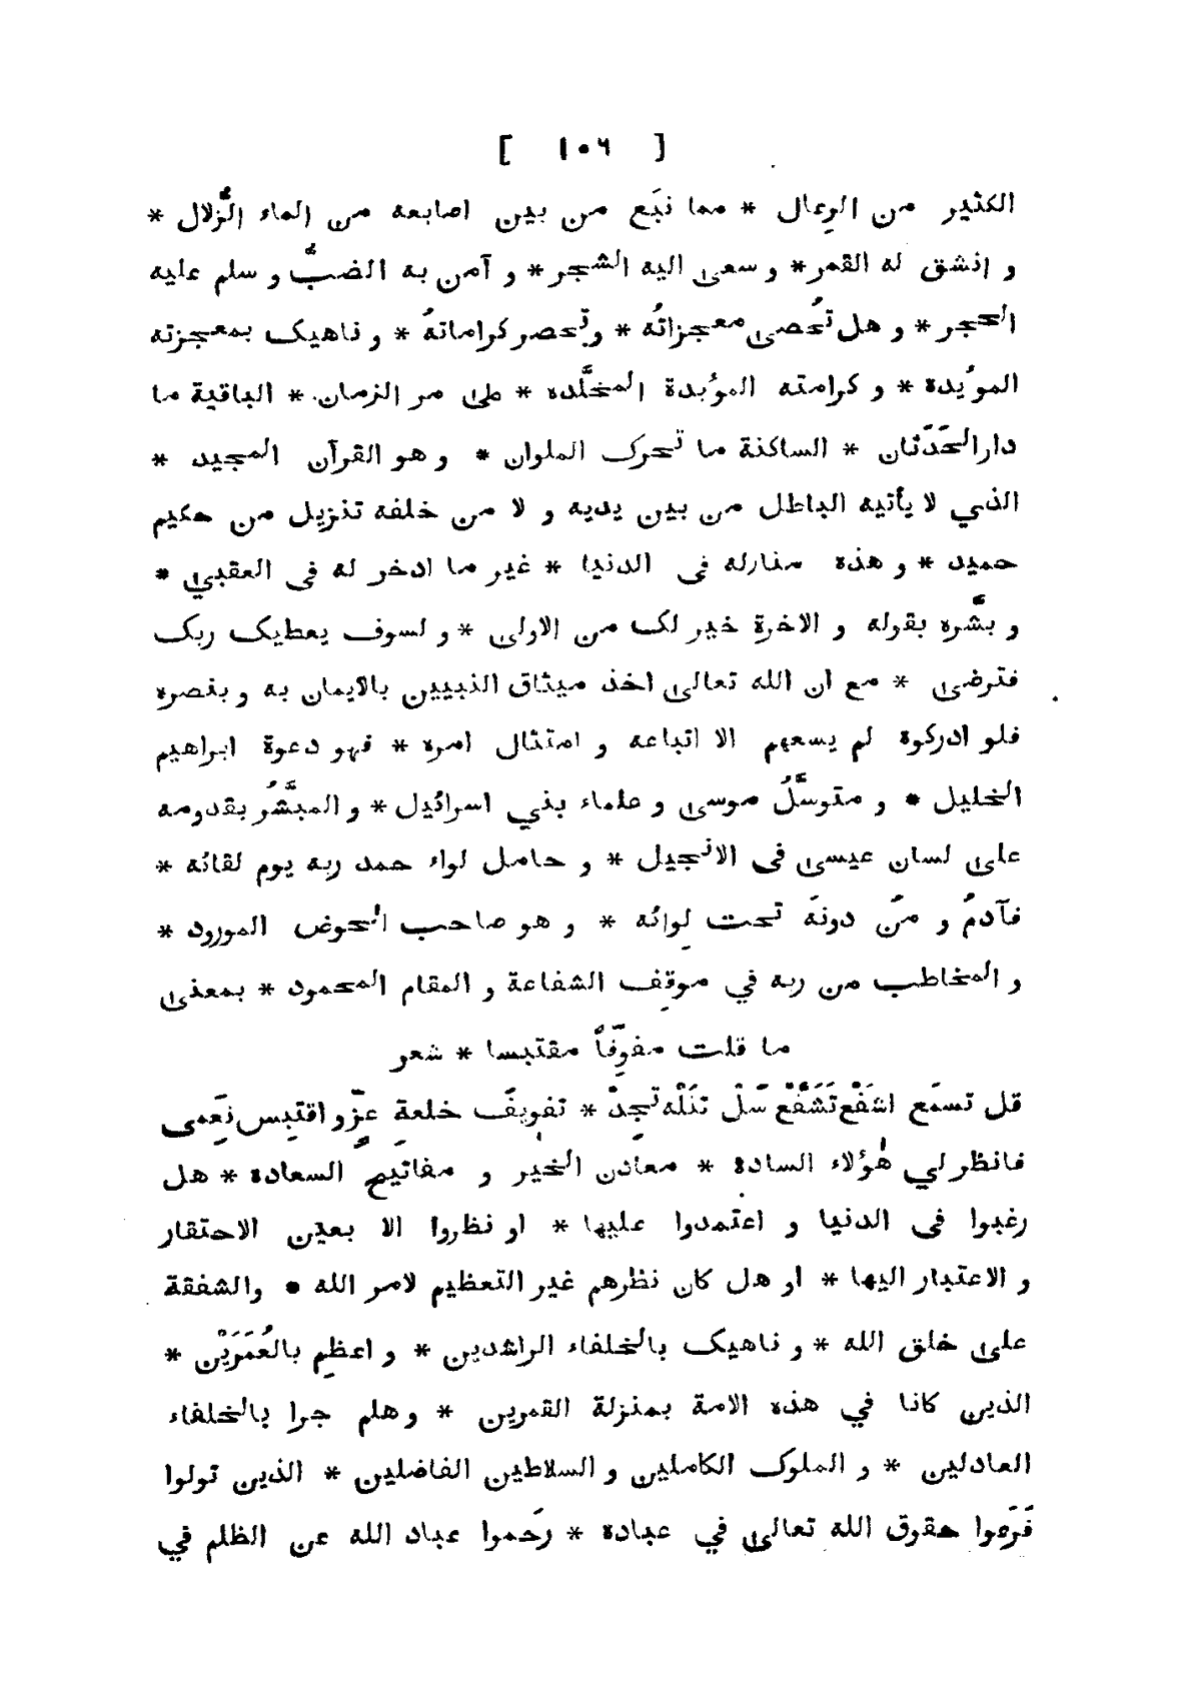 [ ١٠٦ ]
الكثير من الرِعال * مما نبَع من بين اصابعه من الماء الزُّلال *
و انشق له القمر * و سعى اليه الشجر * و آمن به الضبُّ و سلم عليه
الحجر * و هل تُحصى معجزاتُه * و تحصر كراماتهُ * و ناهيک بمعجزته
الموُيدة * و كرامته الموُبدة المخلَّده * على مر الزمان * الباقية ما
دار الحَدَثان * الساكنة ما تحرک الملوان * و هو القرآن المجيد *
الذي لا يأتيه الباطل من بين يديه و لا من خلفه تنزيل من حكيم
حميد * و هذه منازله فى الدنيا * غير ما ادخر له فى العقبي *
و بشَّره بقوله و الاخرة خير لک من الاولى * و لسوف يعطيک ربک
فترضى * مع ان الله تعالى اخذ ميثاق النبيين بالايمان به و بنصره
فلو ادركوه لم يسعهم الا اتباعه و امتثال امره * فهو دعوة ابراهيم
الخليل * و متوسَّلُ موسى و علماء بني اسرائيل * و المبشَّرُ بقدومه
على لسان عيسى فى الانجيل * و حامل لواء حمد ربه يوم لقائه *
فآدمُ و منَ دونهَ تحت لِوائه * و هو صاحب الحوض المورود *
و المخاطب من ربه في موقِف الشفاعة و المقام المحمود * بمعنى
ما قلت مفوِّفاً مقتبسا * شعر
قل تسمَع اشفَعْ تَشَفَّعْ سَلْ تنَلْه تجِدْ * تفويفَ خلعةِ عِزٍّ و اقتبِس نعَمى
فانظر لي هٰؤلاء السادة * معادن الخير و مفاتيح السعادة * هل
رغبوا فى الدنيا و اعتمدوا عليها * او نظروا الا بعين الاحتقار
و الاعتبار اليها * او هل كان نظرهم غير التعظيم لامر الله * والشفقة
على خلق الله * و ناهيک بالخلفاء الراشدين * و اعظِم بالعُمَرَيْن *
الذين كانا في هذه الامة بمنزلة القمرين * و هلم جرا بالخلفاء
العادلين * و الملوک الكاملين و السلاطين الفاضلين * الذين تولوا
فَرَعوا حقوق الله تعالى في عباده * رَحموا عباد الله عن الظلم في